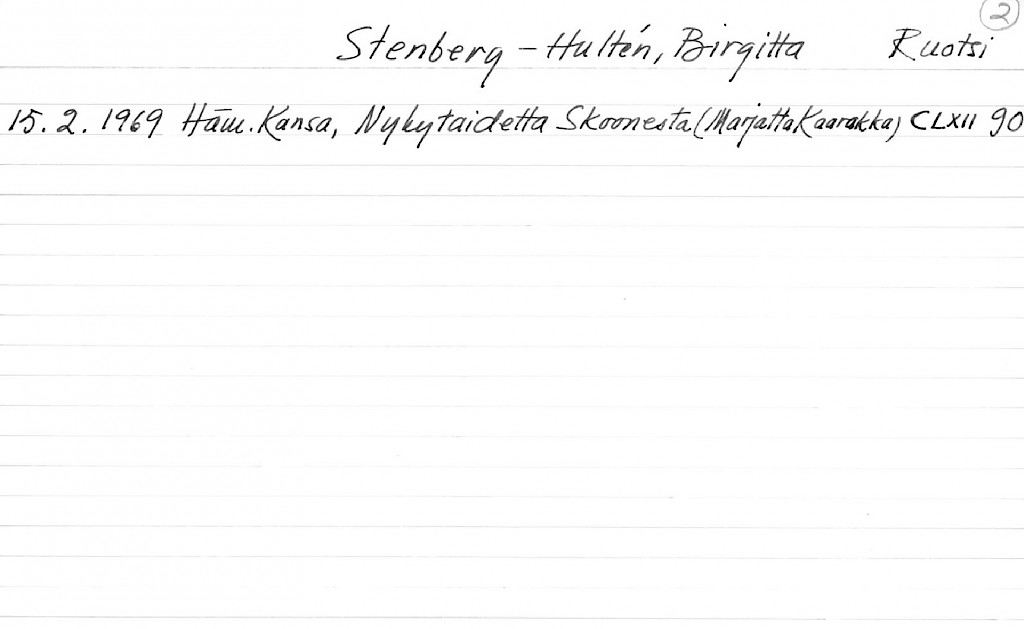 2
Stenberg - Hultén, Birgitta Ruotsi
15. 2. 1969 Häm. Kansa, Nykytaidetta Skoonesta (Marjatta Kaarakka) CLXII 90